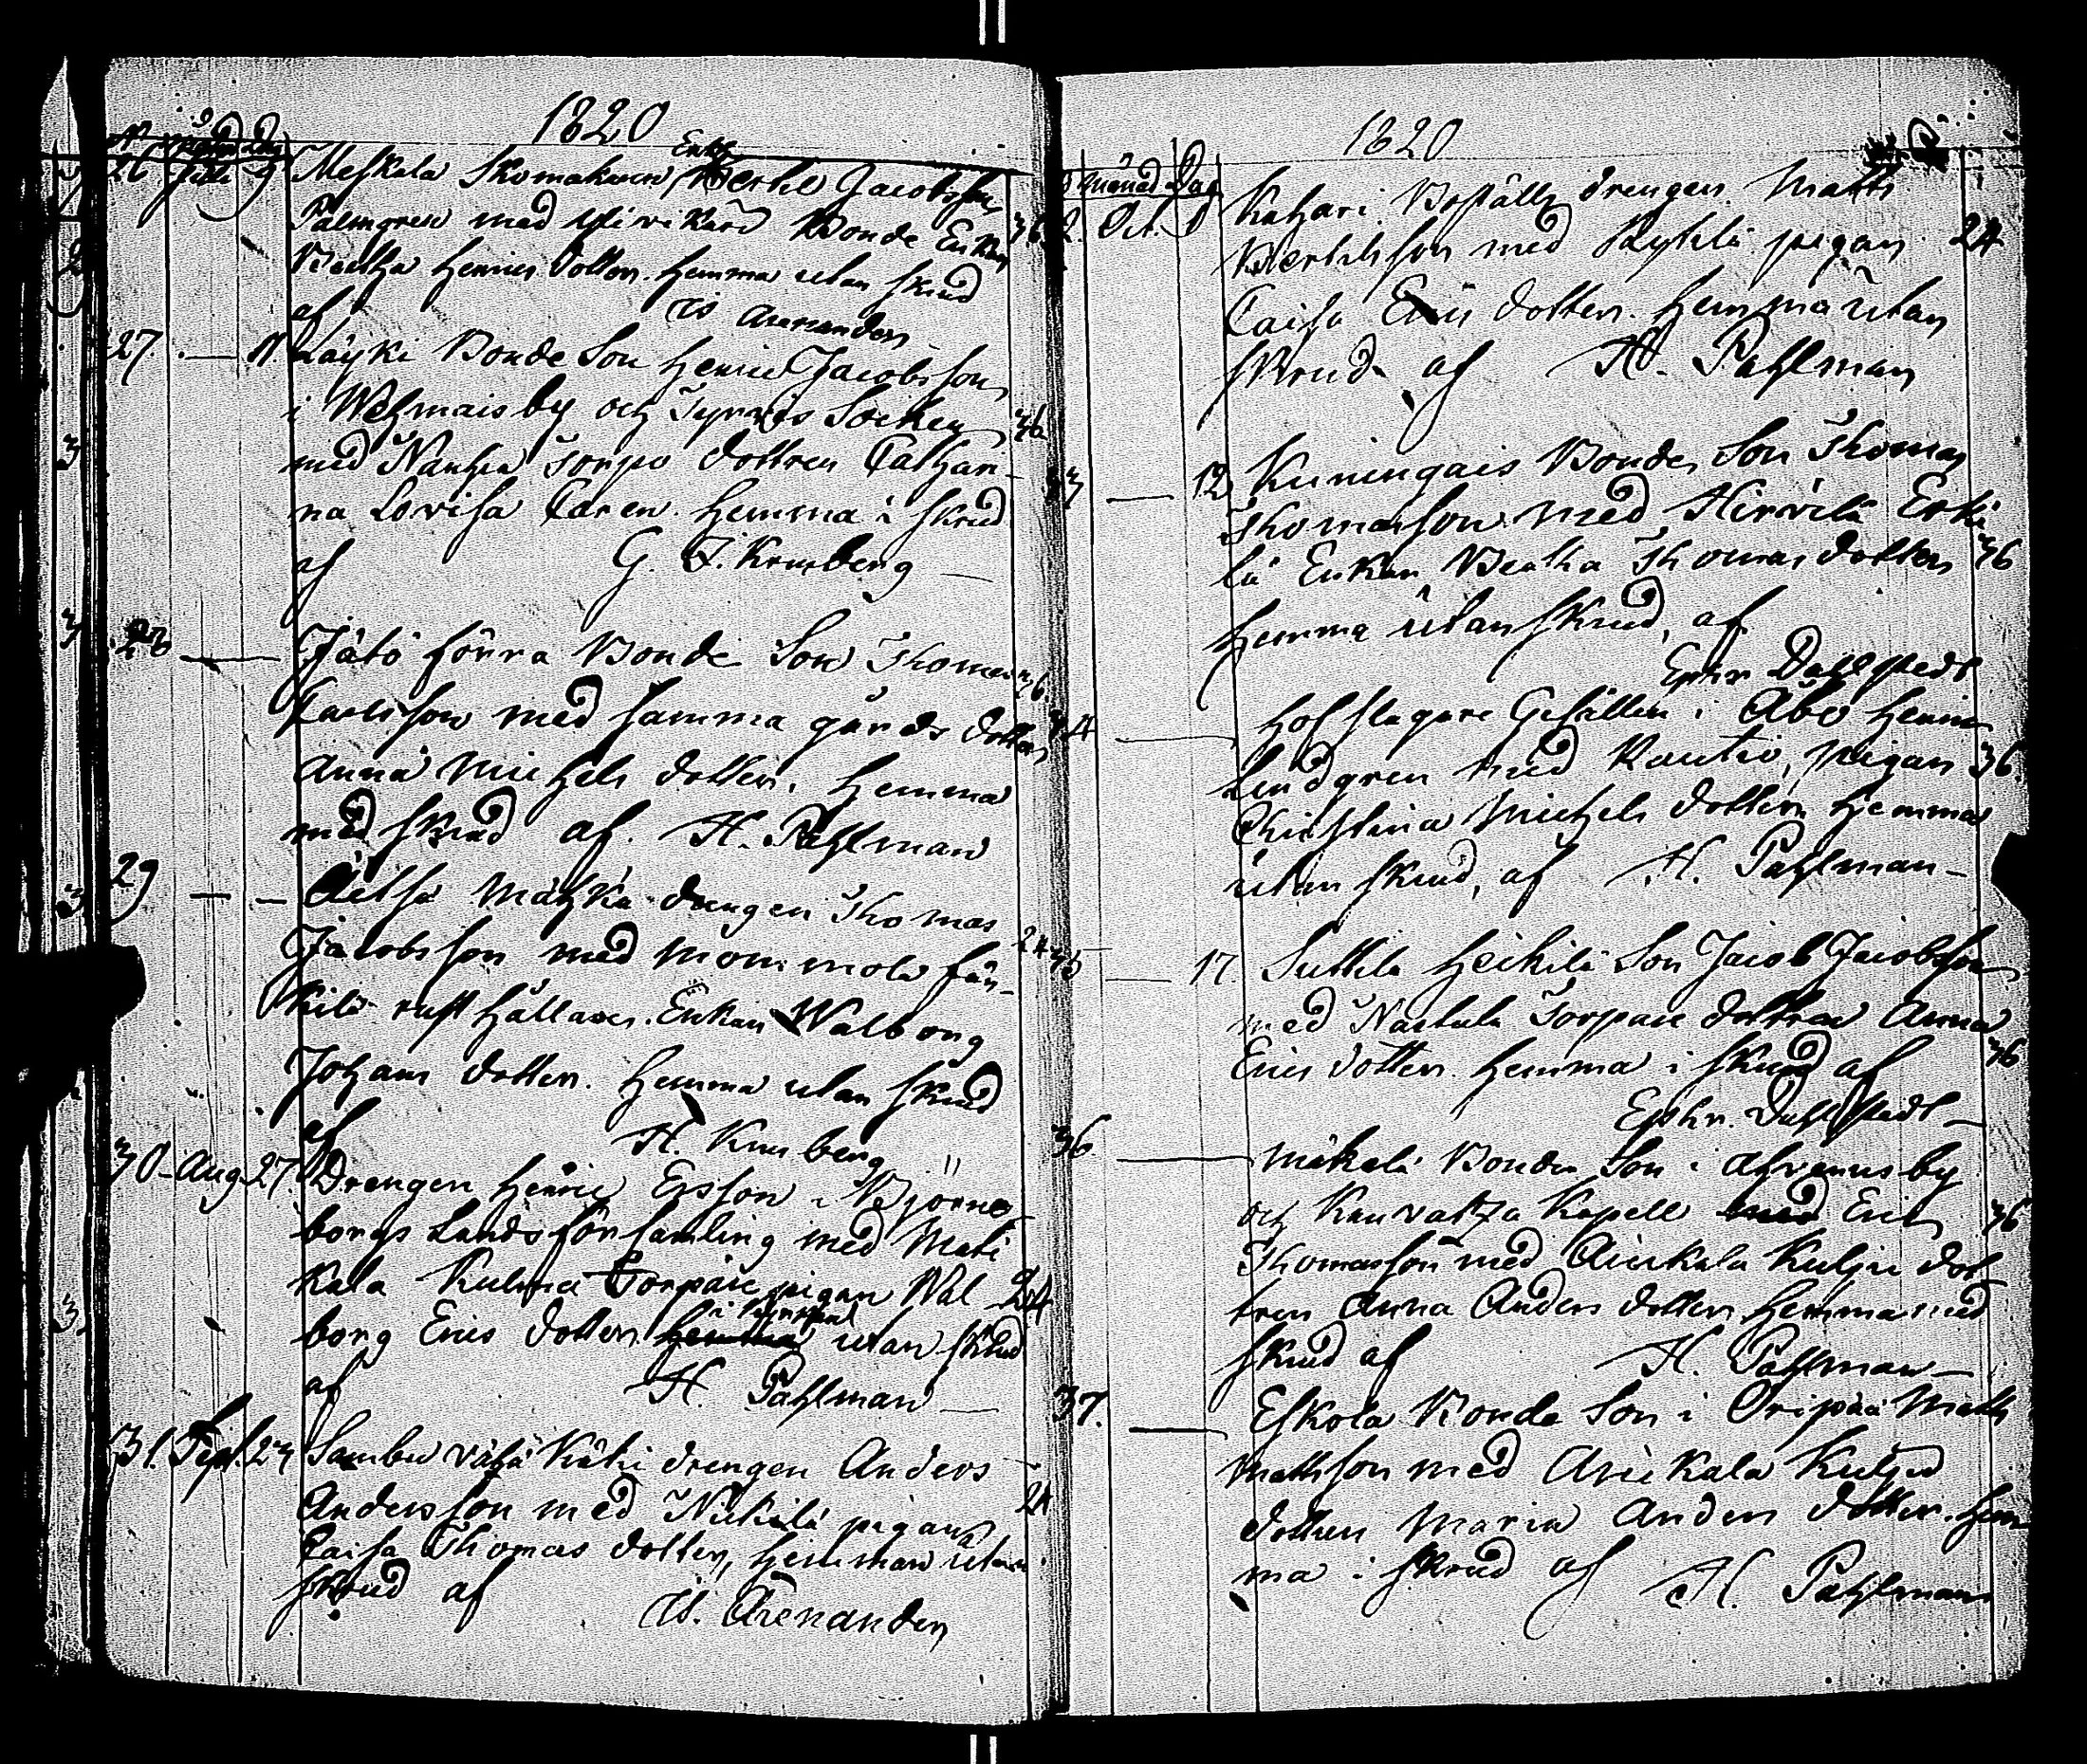 1820
N månad Dag
26 Julii 9 Meskala Skomakaren Enkl. Bertel Jacobsson
Palmgren med Yli vikari Bonde Enkan 36
Beatha Henrics dotter. Hemma utan skrud
af Is Arenander
27. — 11 Läyki Bonde Son Henric Jacobsson
i Wehmais by och Tyrvis Socken 36
med Nanhia Torpo dottren Cathari-
na Lovisa Caren. Hemma i skrud
af G. I. Krusberg —
28 — Jätö förra Bonde Son Thomas 36.
Carlsson med samma gårds dotter
Anna Michels dotter. Hemma
med skrud af. H. Pahlman
29 — — Äetsä Mähkä drengen Thomas
Jacobsson med Mommola 24
kilä rusthållare. Enkan Walborg
Johans dotter. Hemma utan skrud
af H. Krusberg
30 - Aug. 27. Drengen Henric Ersson i Björne-
borgs Landsförsamling med Mati
kala Kulma Torpare pigan Wal- 24
borg Erics dotter utan skrud
af H. Pahlman —
31. Sept. 24 Sambu vähä Käki drengen Anders
Andersson med Nikkilä pigan 24
Caisa Thomas dotter, hemma utan
skrud af Is. Arenander
1820
månad Dag
32. Oct. 8 Kahari Bställs drengen Matts
Bertilsson med Kyttlä pigan 24
Caisa Erics dotter. Hemma utan
skrud af H. Pahlman
33 — 12 Kuningais Bonde Son Thomas
Thomasson med Hirvilä Erki
lä Enkan Beatha Thomas dotter 36
hemma utan skrud, af
Ephr. Dahlstedt
34 — Hofslagare Gesällen i Åbo Henric
Lindgren med Rautio, pigan 36.
Christina Michels dotter. Hemma
utan skrud, af H. Pahlman —
35 — 17. Suttila Heikilä Son Jacob Jacobsson
med Nartula Torpare dottren Anna
Erics dotter. Hemma i skrud af 36
Ephr. Dahlstedt —
36. — Mäkelä Bonde Son i by
och Kauvatza Kapell med Eric 36
Thomasson med Äiekala Kulju dot
tren Anna Anders dotter Hemma med
skrud af H. Pahlman —
37. — Eskola Bonde Son i Oripää Matts
Mattsson med Äiekala Kulju
dottren Maria Anders dotter. Hem
ma i skrud af H. Pahlman